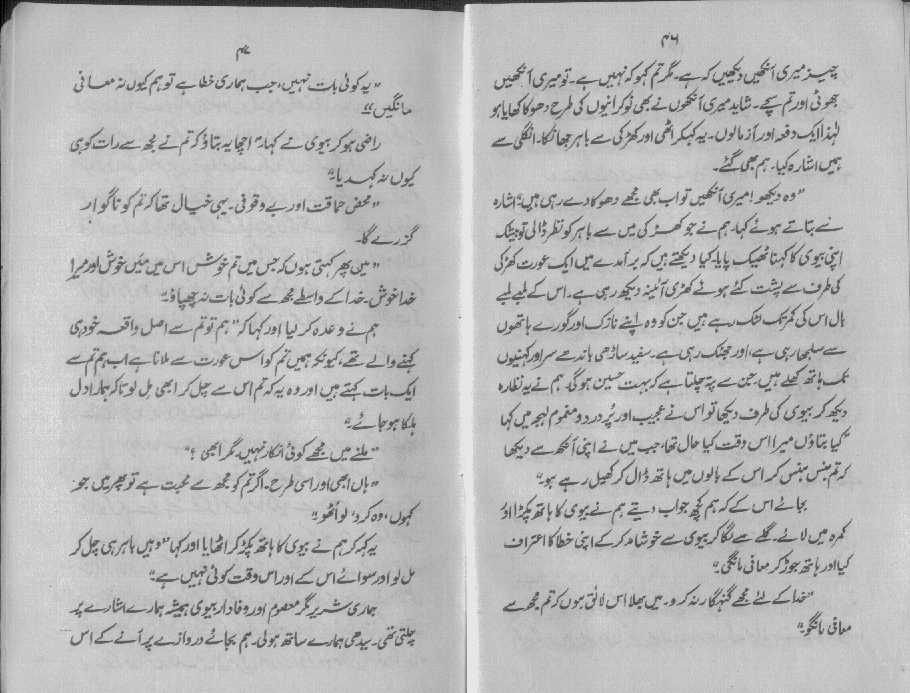 ۴۶
چیز میری آنکھیں دیکھیں کہ ہے۔ مگر تم کہو کہ نہیں ہے۔ تو میری آنکھیں
جھوٹی اور تم سچے۔ شاید میری آنکھوں نے بھی نوکرانیوں کی طرح دھوکا کھایا ہو
لہٰذا ایک دفعہ اور آزمالوں۔ یہ کہکر اٹھی اور کھڑکی سے باہر جھانکا۔ انگلی سے
ہمیں اشارہ کیا۔ ہم بھی گئے۔
"وہ دیکھو! میری آنکھیں تو اب بھی مجھے دھوکا دے رہی ہیں" اشارہ
سے بتاتے ہوئے کہا۔ ہم نے جو کھڑکی میں سے باہر کو نظر ڈالی تو بیشک
اپنی بیوی کا کہنا ٹھیک پایا۔ کیا دیکھتے ہیں کہ برآمدے میں ایک عورت کھڑکی
کی طرف سے پشت کئے ہوئے کھڑی آئینہ دیکھ رہی ہے۔ اس کے لمبے لمبے
بال اس کی کمر تک لٹک رہے ہیں جن کو وہ اپنے نازک اور گورے ہاتھوں
سے سلجھا رہی ہے، اور جھٹک رہی ہے۔ سفید ساڑھی باندھے سر اور کہنیوں
تک ہاتھ کھلے ہیں۔ جن سے پتہ چلتا ہے کہ بہت حسین ہوگی۔ ہم نے یہ نظارہ
دیکھ کر بیوی کی طرف دیکھا تو اس نے عجیب اور پُر درد و مغموم لہجہ میں کہا
"کیا بتاؤں میرا اس وقت کیا حال تھا، جب میں نے اپنی آنکھ سے دیکھا
کہ تم ہنس ہنس کر اس کے بالوں میں ہاتھ ڈال کر کھیل رہے ہو"
بجائے اس کے کہ ہم کچھ جواب دیتے ہم نے بیوی کا ہاتھ پکڑا اور
کمرہ میں لائے۔ گلے سے لگا کر بیوی سے خوشامد کر کے اپنی خطا کا اعتراف
کیا اور ہاتھ جوڑ کر معافی مانگی۔"
"خدا کے لئے مجھے گنہگار نہ کرو۔ میں بھلا اس لائق ہوں کہ تم مجھ سے
معافی مانگو۔"
۴۷
"یہ کوئی بات نہیں، جب ہماری خطا ہے تو ہم کیوں نہ معافی
مانگیں"
راضی ہو کر بیوی نے کہا۔ "اچھا یہ بتاؤ کہ تم نے مجھ سے رات کو ہی
کیوں نہ کہدیا۔"
"محض حماقت اور بے وقوفی۔ یہی خیال تھا کہ تم کو ناگوار
گزرے گا۔
"میں پھر کہتی ہوں کہ جس میں تم خوش اس میں میَں خوش اور میرا
خدا خوش۔ خدا کے واسطے مجھ سے کوئی بات نہ چھپاؤ۔"
ہم نے وعدہ کر لیا اور کہا کہ "ہم تو تم سے اصل واقعہ خود ہی
کہنے والے تھے، کیونکہ ہمیں تم کو اس عورت سے ملانا ہے اب ہم تم سے
ایک بات کہتے ہیں اور وہ یہ کہ تم اس سے چل کر ابھی مل لو تاکہ ہمارا دل
ہلکا ہو جائے"
"ملنے میں مجھے کوئی انکار نہیں۔ مگر ابھی ؟"
"ہاں ابھی اور اسی طرح۔ اگر تم کو مجھ سے محبت ہے تو پھر میں جو
کہوں، وہ کرو۔ لو اُٹھو۔"
یہ کہہ کر ہم نے بیوی کا ہاتھ پکڑ کر اٹھایا اور کہا "وہیں باہر ہی چل کر
مل لو اور سوائے اس کے اور اس وقت کوئی نہیں ہے۔"
ہماری شریر مگر معصوم اور وفادار بیوی ہمیشہ ہمارے اشارے پر
چلتی تھی۔ سیدھی ہمارے ساتھ ہولی۔ ہم بجائے دروازے پر آنے کے اس